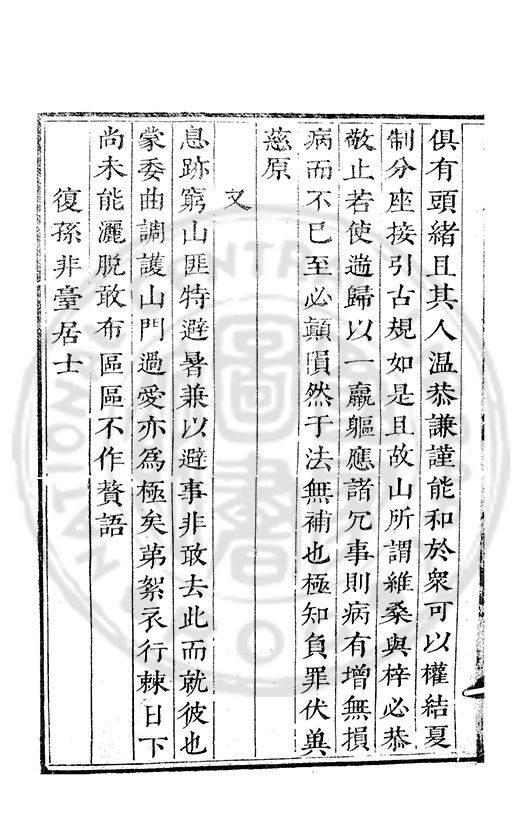 俱有頭緒且其人温恭謙謹能和於衆可以權結夏
制分座接引古規如是且故山所謂維桑與梓必恭
敬止若使遄歸以一羸軀應諸冗事則病有增無損
病而不已至必顛隕然于法無補也極知負罪伏兾
慈原
又
息跡窮山匪特避暑兼以避事非敢去此而就彼也
蒙委曲調護山門過愛亦為極矣第絮衣行棘日下
尚未能灑脫敢布區區不作贅語
復孫非臺居士